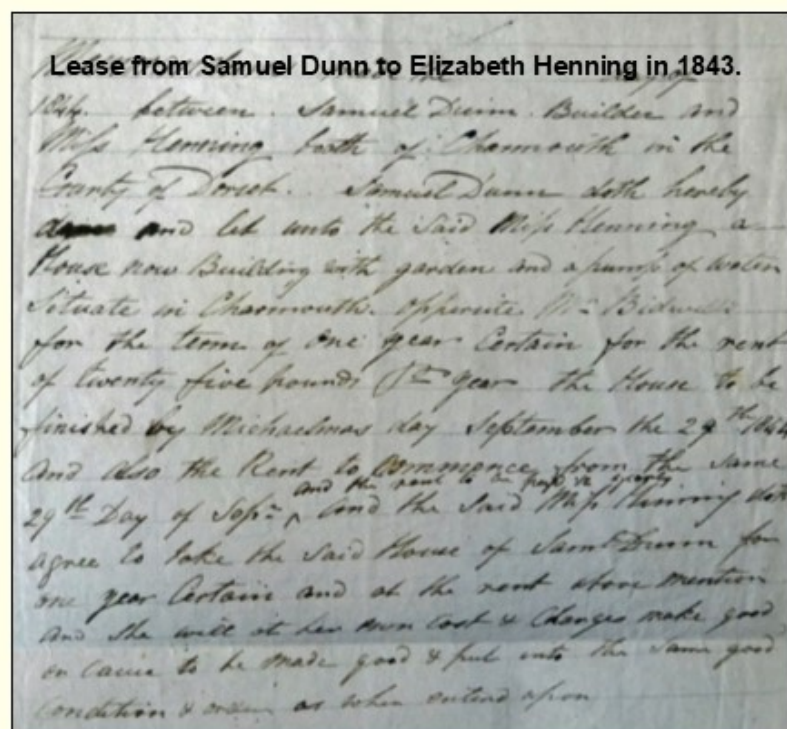 Lease from Samuel Dunn to Elizabeth Henning in 1843.
1844. between Samuel Dunn Builder and
Miss Henning both of Charmouth in the
County of Dorset. Samuel Dunn doth hereby
and let unto the Said Miss Henning a
House now Building with garden and a pump of water
Situate in Charmouth opposite Mr Bidwells
for the term of One year Certain for the rent
of twenty five pounds Pr year the House to be
finished by Michaelmas day September the 29th 1844
And also the Rent to Commence from the Same
and the rent to be paid
29th Day of Sepr ^ And the Said Miss Henning doth
agree to take the Said House of Saml Dunn for
one year Certain and at the rent above mention
And She will at her own Cost & Charges make good
or cause to be made good & put into the Same good
Condition & order as when entered upon